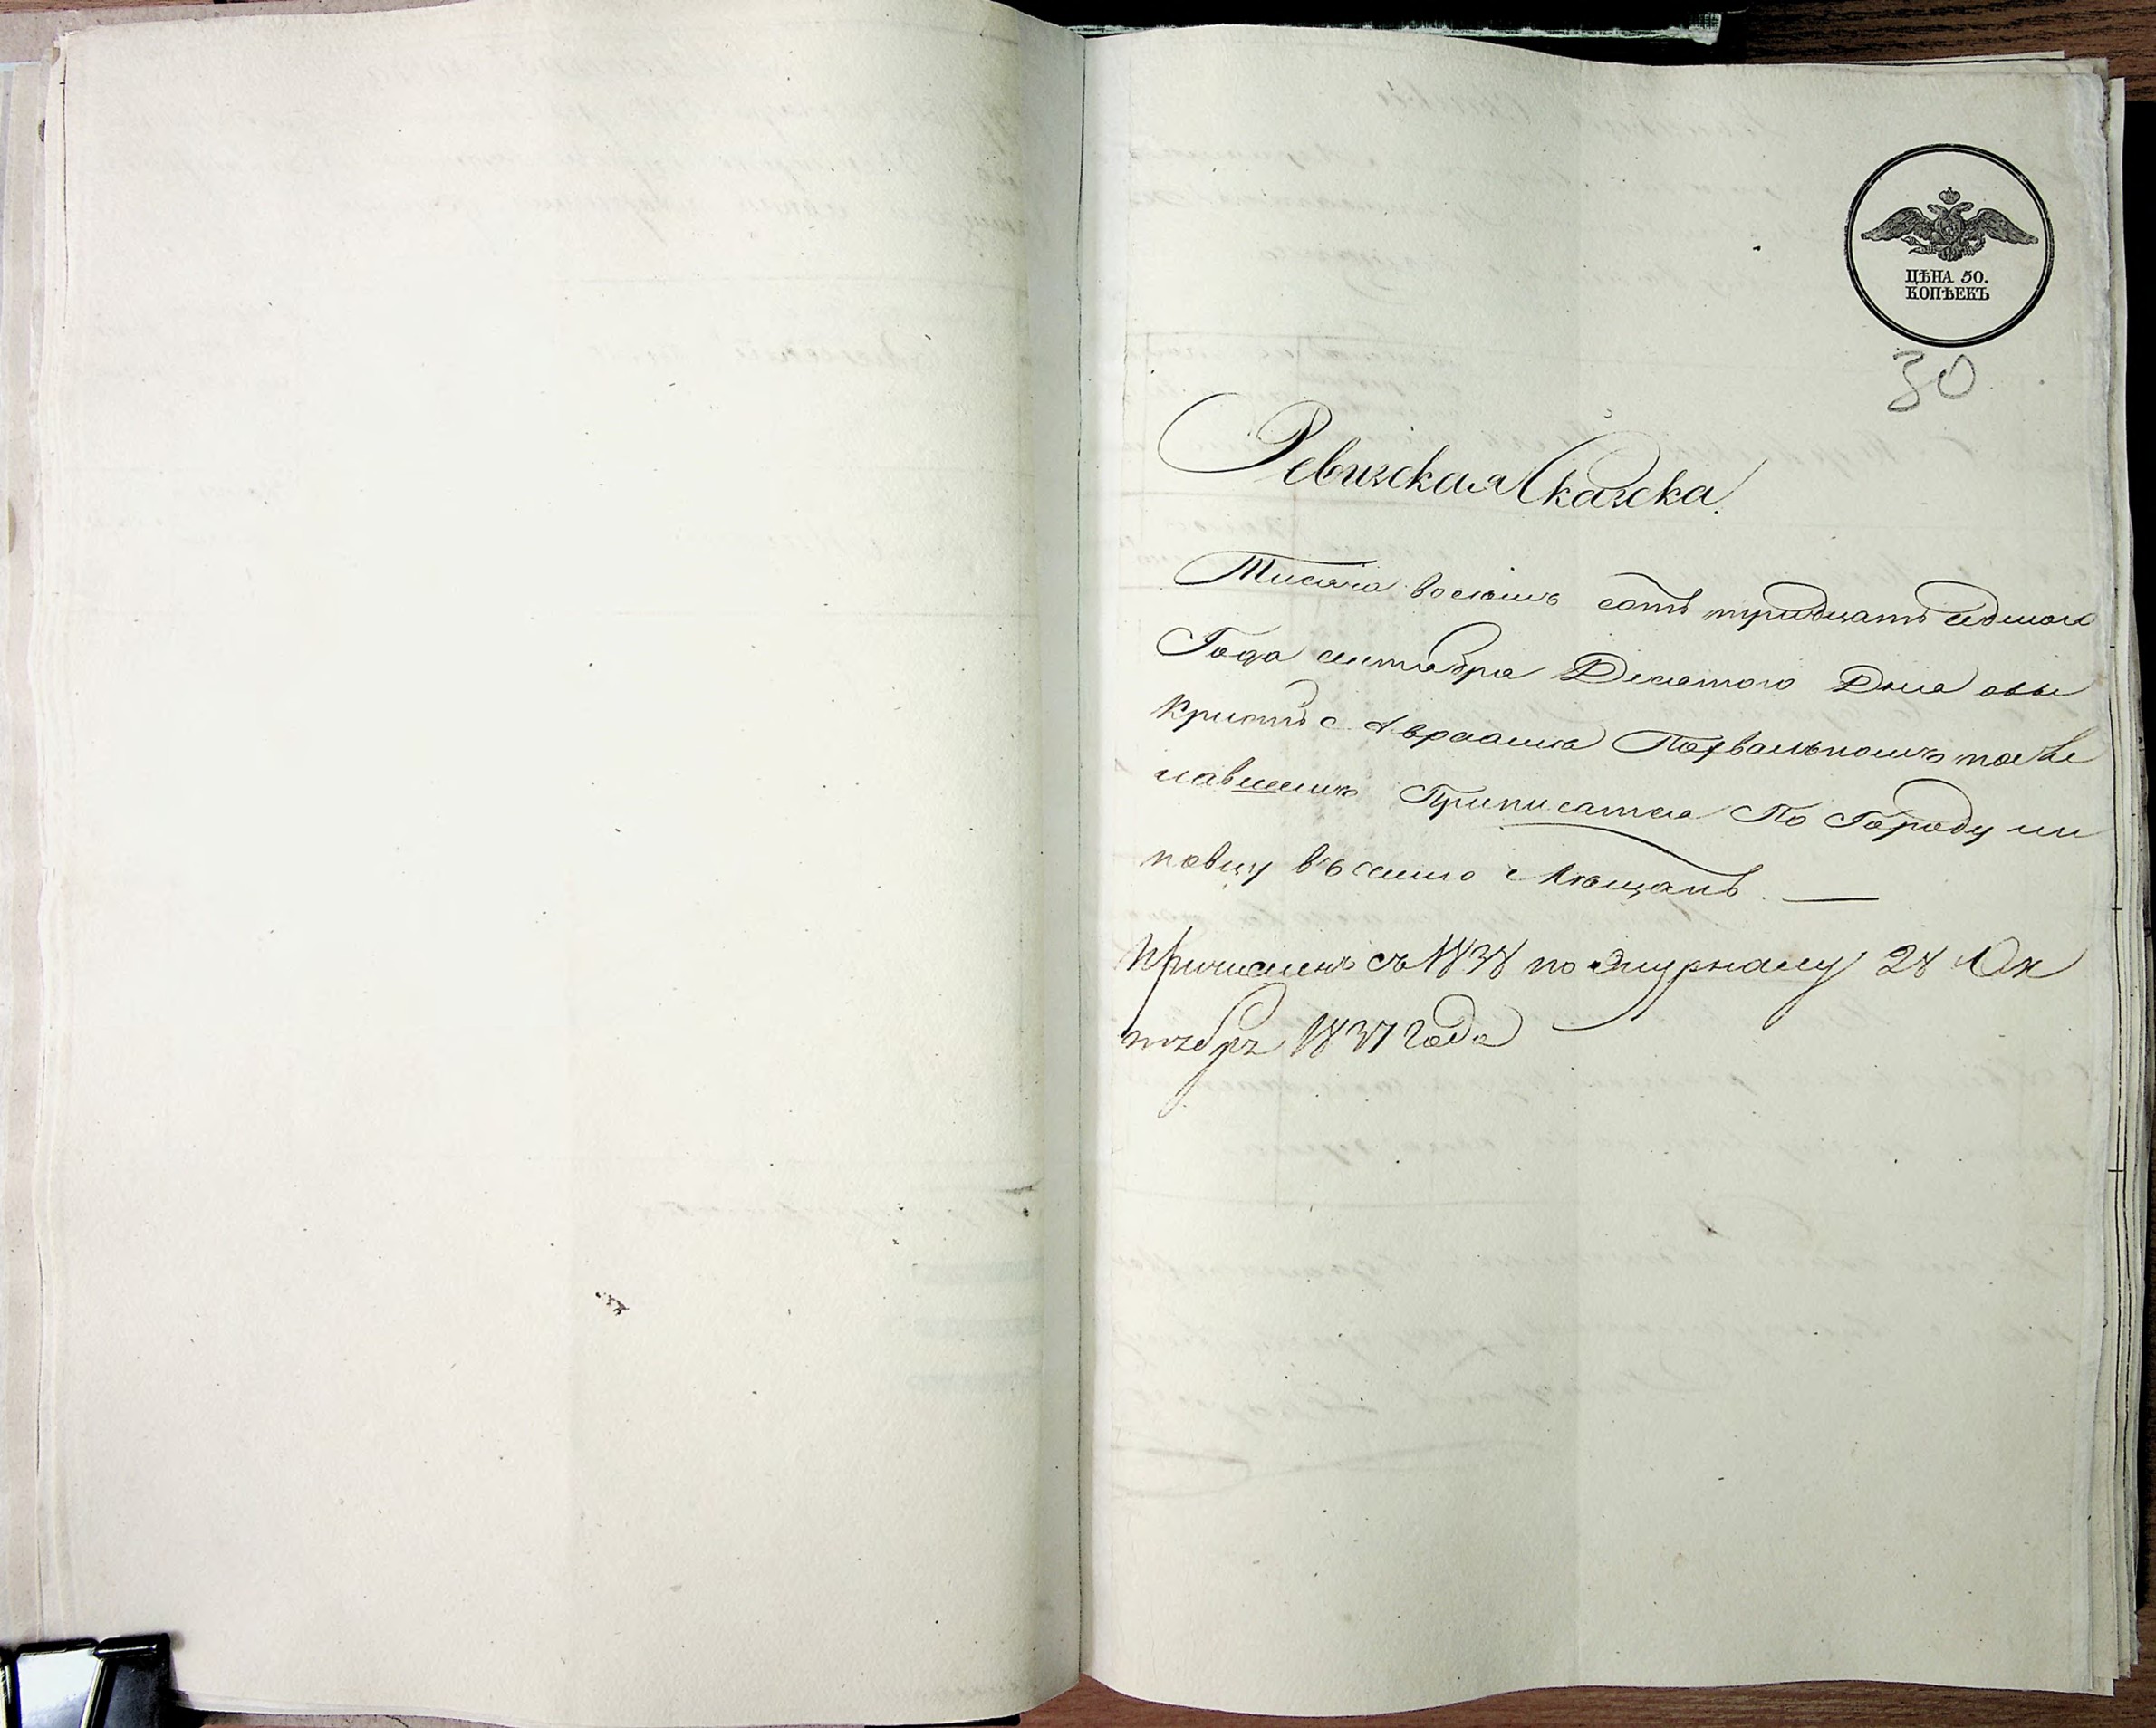 ЦѢНА 50.
КОПѢЕКЪ
30
Ревизская Сказка.
Тисяча восемь сотъ тридцать седмого
Года сентебра Десятого Дня о
Кристъ с Авраамъ Похвальномъ поже
лавшемъ Приписатся По Городу ли
повцу въ сило Мѣщанъ. —
Причисленъ съ 1838 по журналу 28 Ок
тября 1837 года